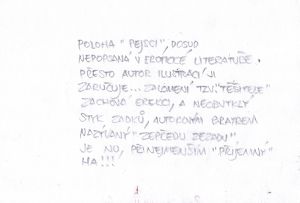 POLOHA "PEJSCI", DOSUD
NEPOPSANÁ V EROTICKÉ LITERATUŘE.
PŘESTO AUTOR ILUSTRACÍ JI
ZARUČUJE... ZALOMENÍ TZV. "TĚŠITELE"
ZACHOVÁ EREKCI, A NEOBVYKLÝ
STYK ZADKŮ, AUTOROVÝM BRATREM
NAZÝVANÝ "ZEPŘEDU ZEZADU"
JE NU, PŘINEJMENŠÍM "PŘÍJEMNÝ"
HA!!!